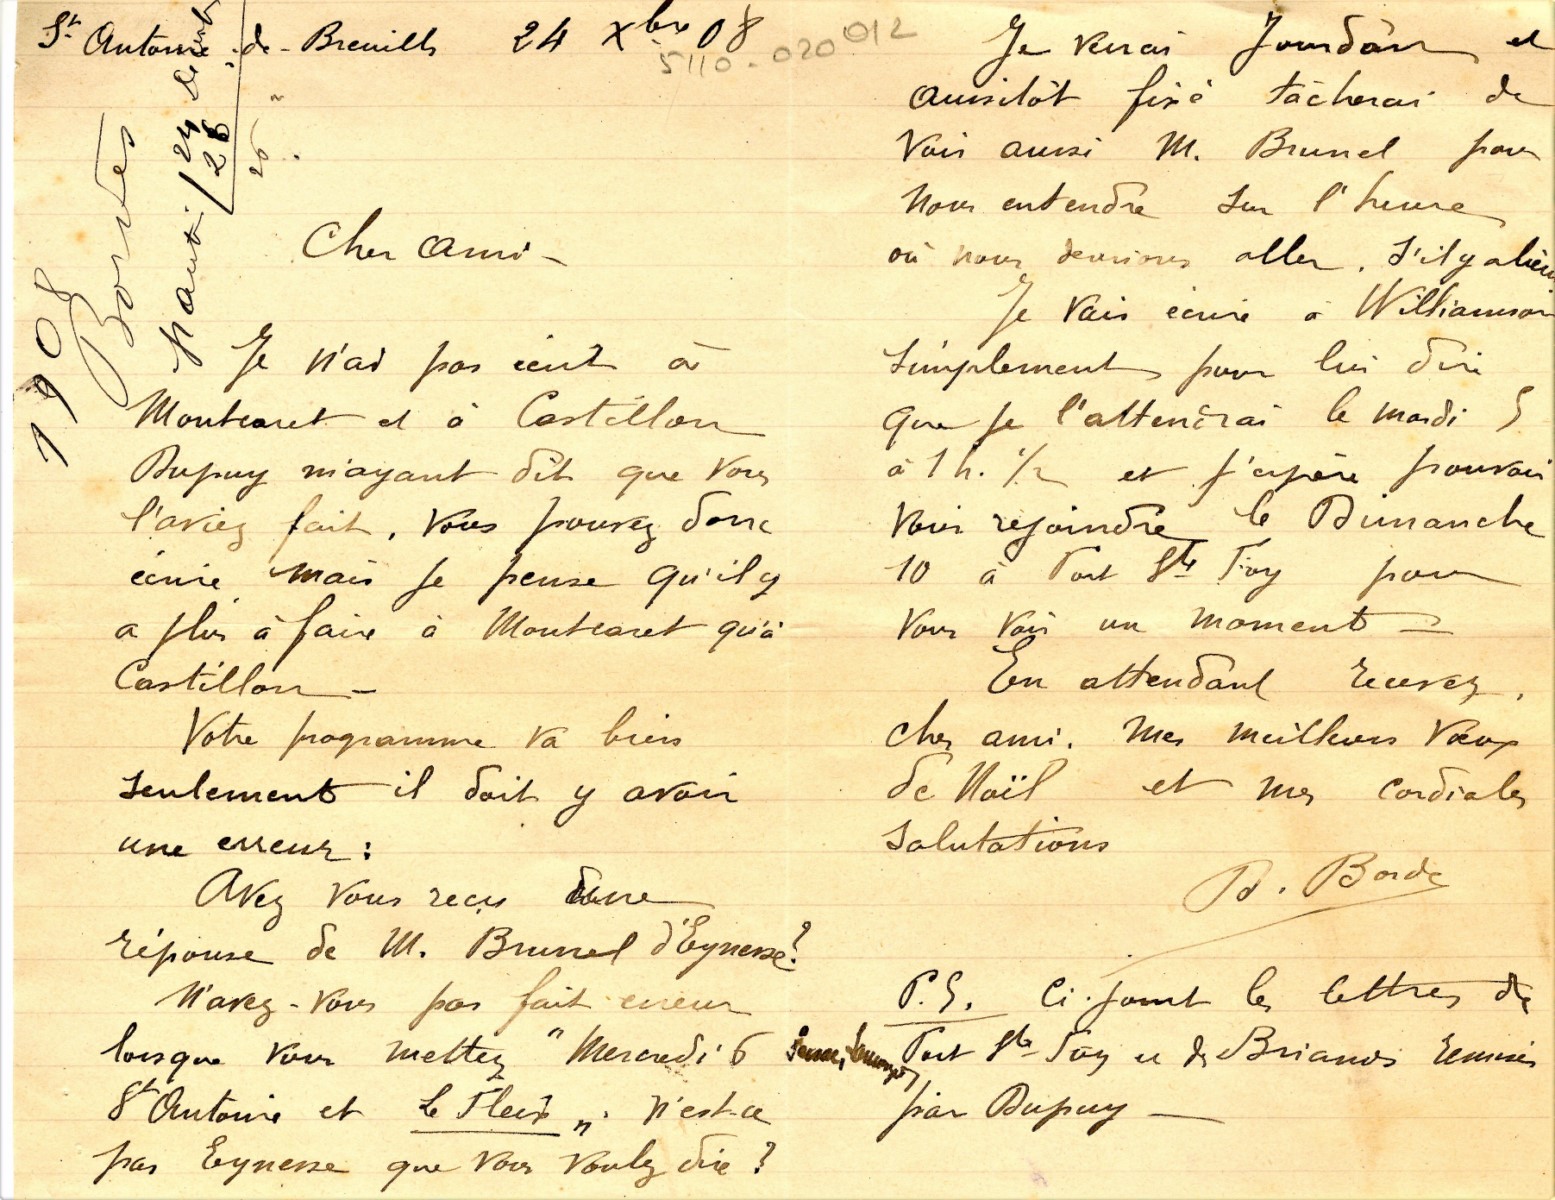 St Antoine-de-Breuilh 24 Xbre 08
5110-020 012
1908
Bordes
24
26
Cher ami -
Je n'ai pas écrit à
Montcaret et à Castillon
Dupuy m'ayant dit que vous
l'aviez fait. Vous pouvez donc
écrire mais je pense qu'il y
a plus à faire à Montcaret qu'à
Castillon -
Votre programme va bien
seulement il doit y avoir
une erreur :
Avez vous reçu une
réponse de M. Brunel d'Eynesse ?
N'avez-vous pas fait erreur
lorsque vous mettez " Mercredi 6
St Antoine et Le Fleix ". N'est-ce
pas Eynesse que vous voulez dire ?
Je verrai Jourdan et
aussitôt fixé tâcherai de
voir aussi M. Brunel pour
nous entendre sur l'heure
où nous devrions aller. S'il y a lieu
Je vais écrire à Williamson
simplement pour lui dire
que je l'attendrai le mardi 5
à 1 h. 1/2 et j'espère pouvoir
vous rejoindre le Dimanche
10 à Port Ste Foy pour
vous voir un moment -
En attendant recevez,
cher ami. mes meilleurs vœux
de Noël et mes cordiales
salutations
D. Borde
P.S. Ci-joint les lettres de
Port Ste Foy et de Briands remises
par Dupuy -